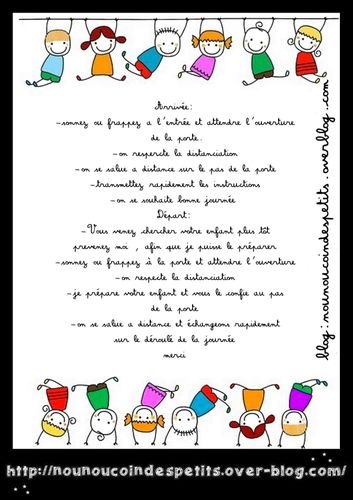 Arrivée:
-sonnez ou frappez a l'entrée et attendre l'ouverture
de la porte.
-on respercte la distanciation
-on se salue a distance sur le pas de la porte
-transmettez rapidement les instructions
-on se souhaite bonne journée
Départ:
-Vous venez chercher votre enfant plus tôt
prevenez moi , afin que je puisse le préparer
-sonnez ou frappez à la porte et attendre l'ouverture
-on respecte la distanciation
-je prépare votre enfant et vous le confie au pas
de la porte
-on se salue a distance et échangeons rapidement
sur le déroulé de la journée
merci
blog : nounoucoindespetits.overblog.com
http://nounoucoindespetits.over-blog.com/